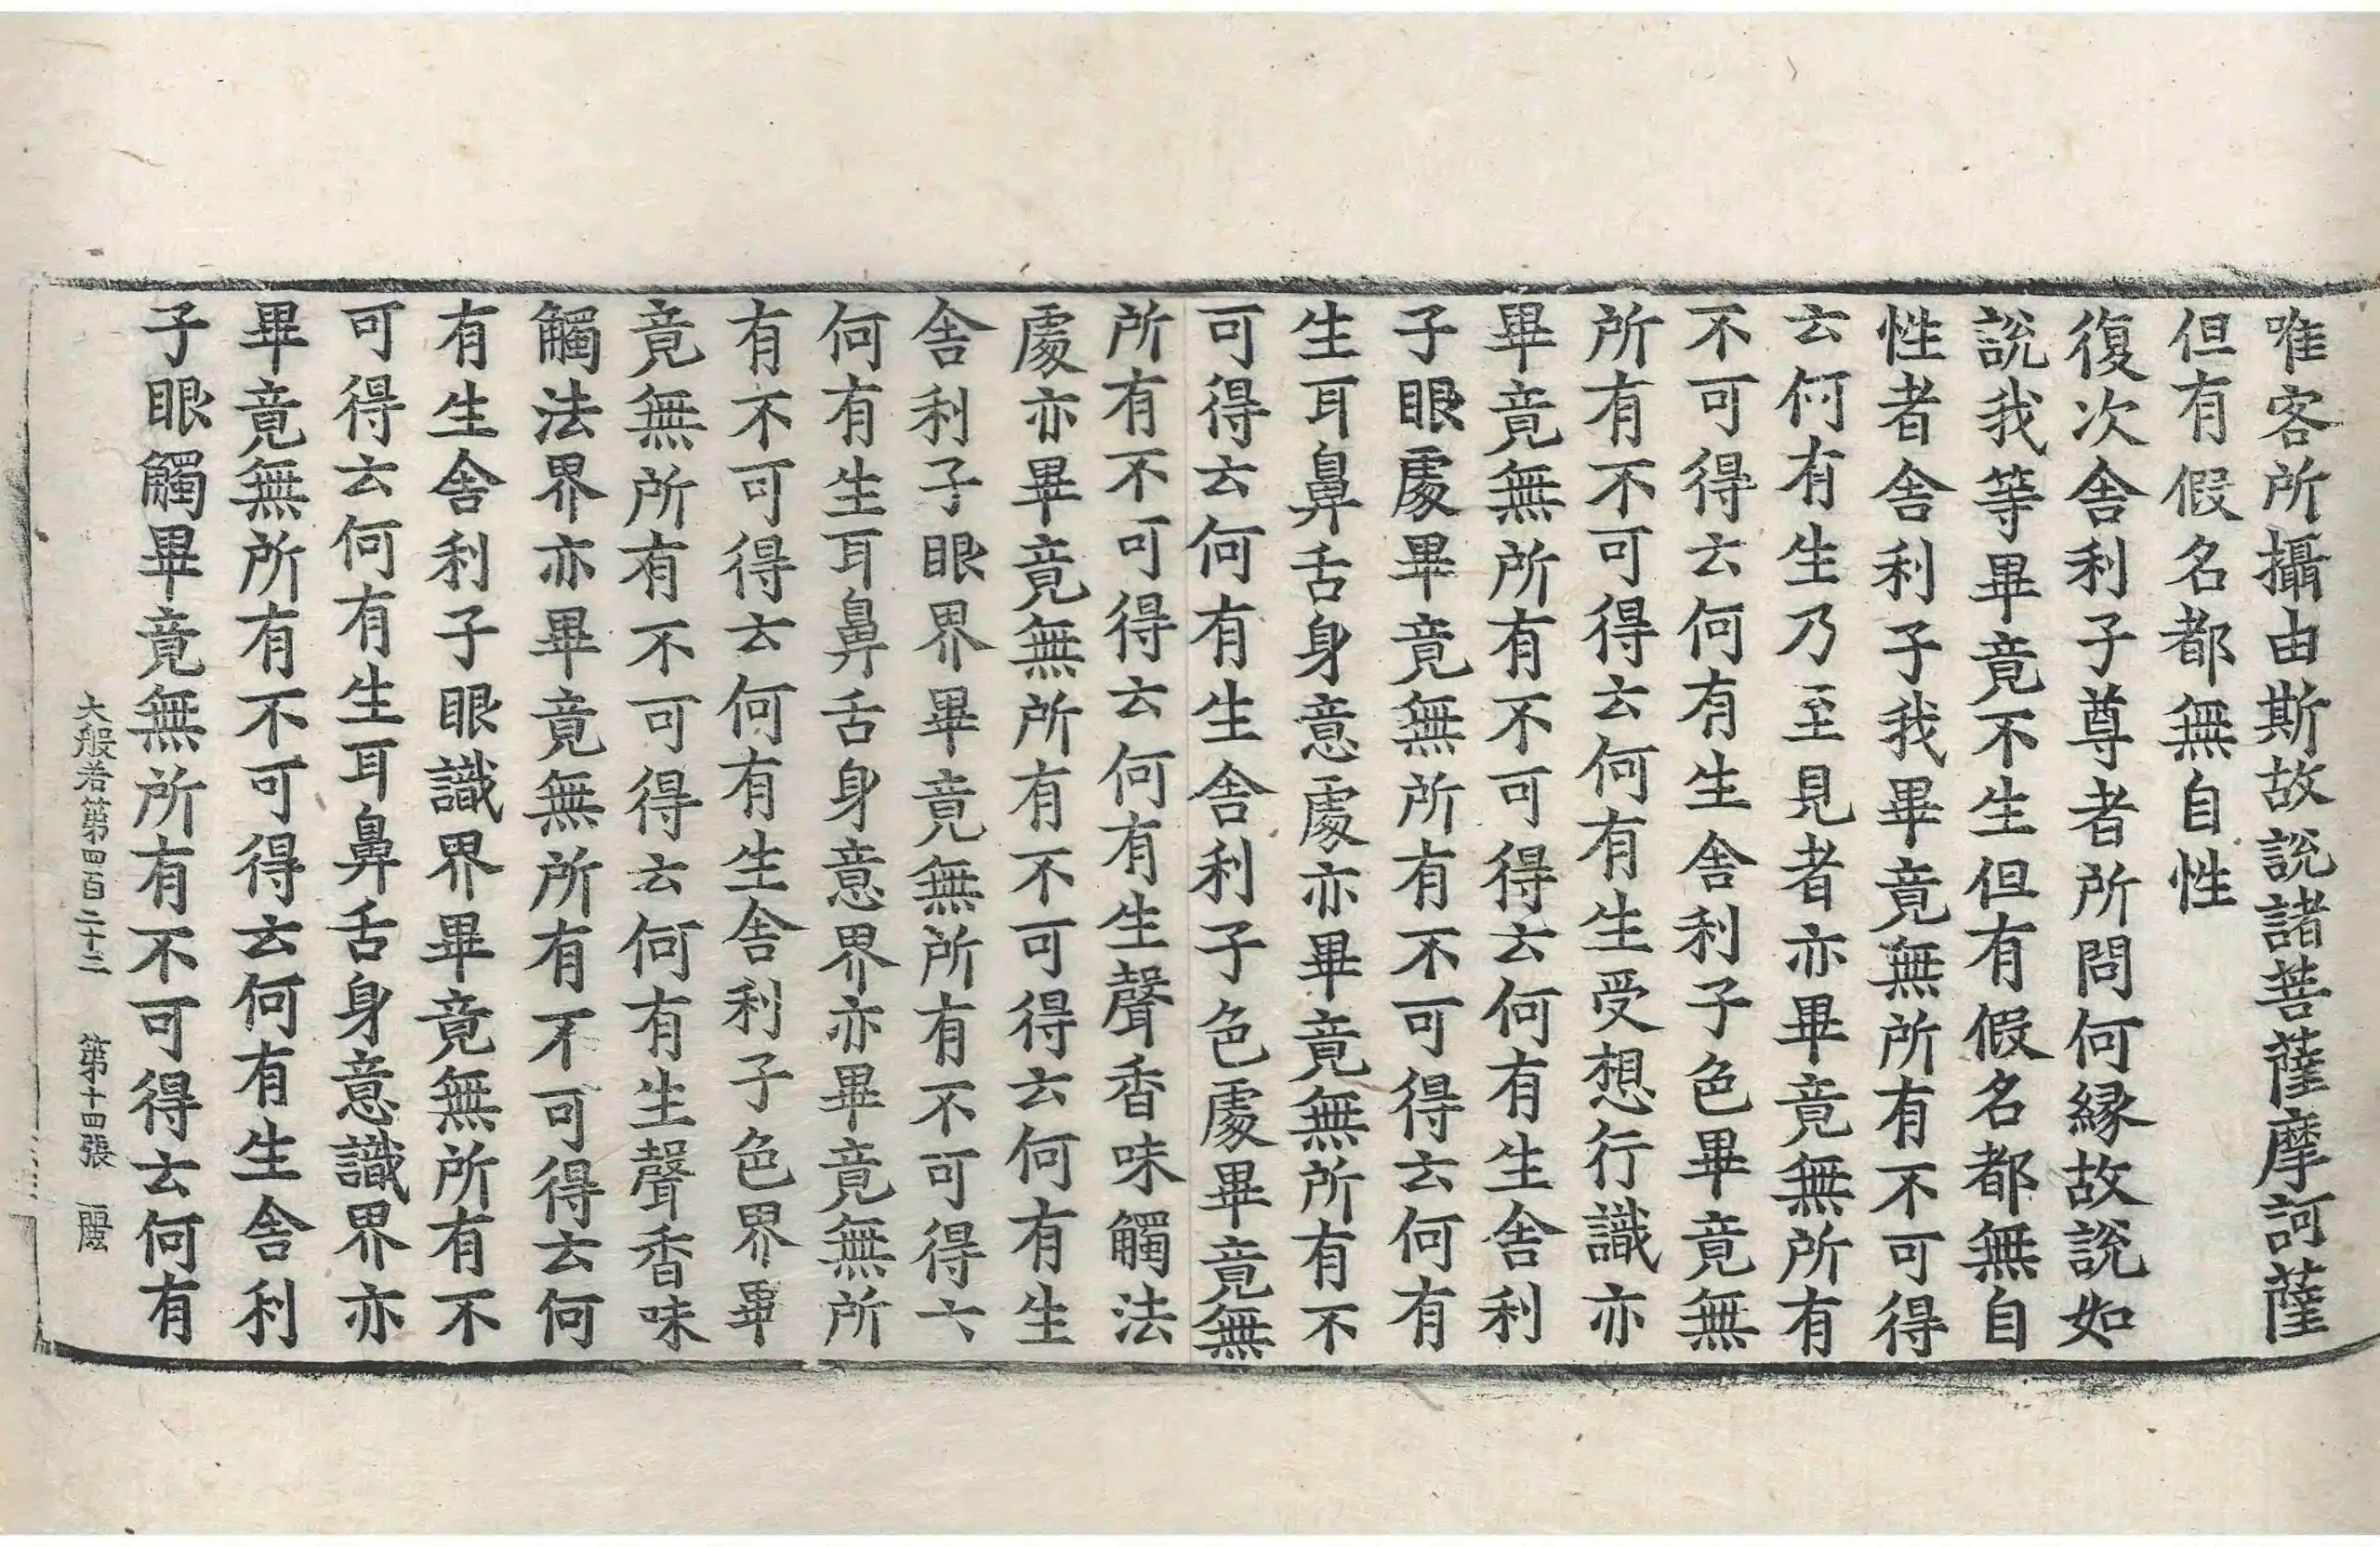 唯客所攝由斯故說諸菩薩摩訶薩
但有假名都無自性
復次舍利子尊者所問何縁故說如
說我等畢竟不生但有假名都無自
性者舍利子我畢竟無所有不可得
云何有生乃至見者亦畢竟無所有
不可得云何有生舍利子色畢竟無
所有不可得云何有生受想行識亦
畢竟無所有不可得云何有生舍利
子眼處畢竟無所有不可得云何有
生耳鼻舌身意處亦畢竟無所有不
可得云何有生舍利子色處畢竟無
所有不可得云何有生聲香味觸法
處亦畢竟無所有不可得云何有生
舍利子眼界畢竟無所有不可得云
何有生耳鼻舌身意界亦畢竟無所
有不可得云何有生舍利子色界畢
竟無所有不可得云何有生聲香味
觸法界亦畢竟無所有不可得云何
有生舍利子眼識界畢竟無所有不
可得云何有生耳鼻舌身意識界亦
畢竟無所有不可得云何有生舍利
子眼觸畢竟無所有不可得云何有
大般若第四百二十三 第十四張